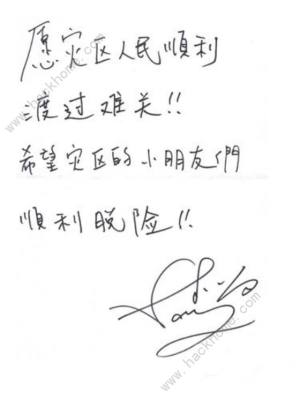 愿灾区人民順利
渡过难关!!
希望灾区的小朋友們
順利脱险!!
www.hackhome.com
www.hackhome.com